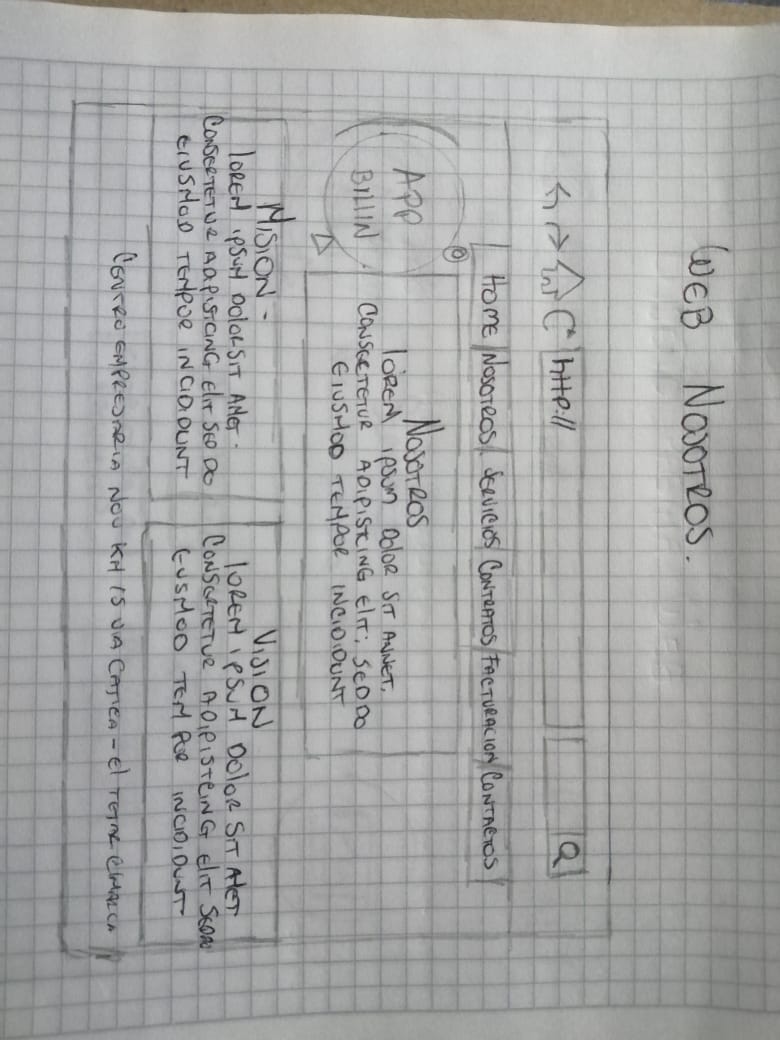 WEB NOSOTROS.
http://
HOME/NOSOTROS/ SERVICIOS CONTRATOS/FACTURACION/CONTACTOS
APP
BILLIN
NOSOTROS
lOREM IPSUM DOLOR SIT AMNET,
CONSERTETUR ADIPISTCING ELIT; SED DO
EIUSMOD TEMPOR INCIDIDUNT
MISION -
lOREM IPSUM DOLOR SIT AMET.
CONSERTETUR ADIPISTCING ELIT SED DO
EIUSMOD TEMPOR INCIDIDUNT
VISION
lOREM IPSUM DOLOR SIT AMET
CONSERTETUR ADIPISTCING ELIT SEDDO
EUSMOD TEMPOR INCIDIDUNT
CENTRO EMPRESARIA NOU KM 15 VIA CAJICA - El